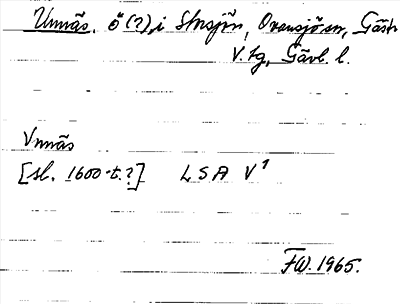 Unnäs, ö (?), i Storsjön, Ovansjö sn, Gästr
V. tg, Gävl. l.
Vnnäs
[sl. 1600-t.?] LSA V¹
FW. 1965.